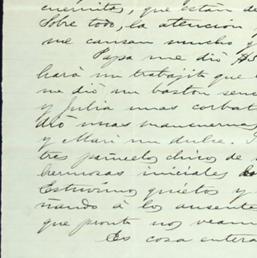 que están de
Sobre todo, la atención
me causan mucho y
Papa me dió
hará un trabajito que
me dió un baston senc
y Julia unas corbat
dió unas mancuernas,
y Mari un dulce.
tres pañuelos chicos de
hermosas iniciales
Estuvimos quietos y
ñando á los ausente
que pronto nos veam
Es cosa entera